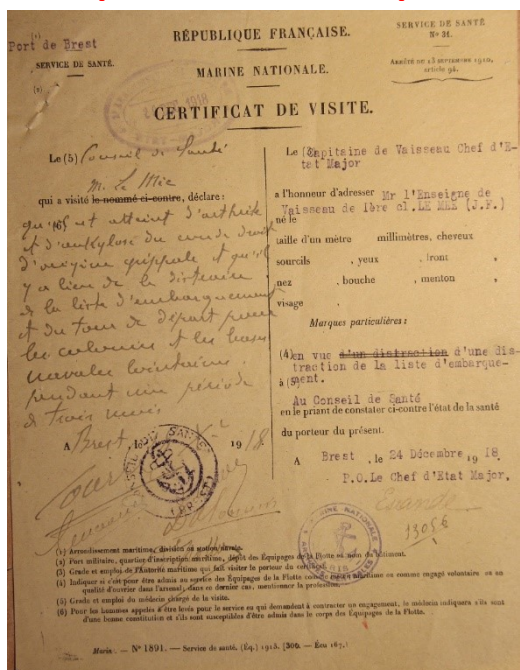 Port de Brest
SERVICE DE SANTÉ.
(2)
RÉPUBLIQUE FRANÇAISE.
MARINE NATIONALE.
SERVICE DE SANTÉ
N° 31.
ARRÊTÉ DU 15 SEPTEMBRE 1910,
article 94.
1918
CERTIFICAT DE VISITE.
Le (5) Conseil de Santé
M. Le Mée
qui a visité le nommé ci-contre, déclare :
qu'il est atteint d'arthrite
et d'ankylose du coude droit
d'origine grippale et qu'il
y a lieu de le distraire
de la liste d'embarquement
et du tour de départ pour
les colonies et les bases
navales lointaines
pendant une période
de trois mois
A Brest, le 1918
CONSEIL DE SANTÉ
BREST
Le (3) Capitaine de Vaisseau Chef d'E-
tat Major
a l'honneur d'adresser Mr l'Enseigne de
Vaisseau de 1ère cl. LE MEE (J.F.)
né le
taille d'un mètre millimètres, cheveux
sourcils , yeux , front ,
nez , bouche , menton ,
visage .
Marques particulières :
(4) en vue d'un distraction d'une dis-
traction de la liste d'embarque-
ment.
à (5)
Au Conseil de Santé
en le priant de constater ci-contre l'état de la santé
du porteur du présent.
A Brest, le 24 Décembre 1918.
P.O. Le Chef d'Etat Major,
13056
MARINE NATIONALE
(1) Arrondissement maritime, division ou station navale.
(2) Port militaire, quartier d'inscription maritime, dépôt des Équipages de la Flotte ou nom du bâtiment.
(3) Grade et emploi de l'Autorité maritime qui fait visiter le porteur du certificat.
(4) Indiquer si c'est pour être admis au service des Équipages de la Flotte comme inscrit maritime ou comme engagé volontaire ou en
qualité d'ouvrier dans l'arsenal; dans ce dernier cas, mentionner la profession.
(5) Grade et emploi du médecin chargé de la visite.
(6) Pour les hommes appelés à être levés pour le service ou qui demandent à contracter un engagement, le médecin indiquera s'ils sont
d'une bonne constitution et s'ils sont susceptibles d'être admis dans le corps des Équipages de la Flotte.
Marine. — N° 1891. — Service de santé. (Éq.) 1915. [306. — Éou 187.]